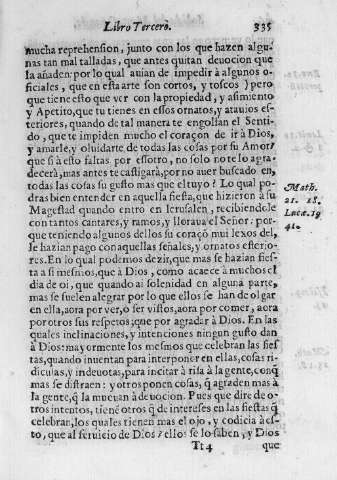 Libro Tercero. 335
mucha reprehension, junto con los que hazen algu-
nas tan mal talladas, que antes quitan deuocion que
la añaden: por lo qual auian de impedir à algunos o-
ficiales, que en esta arte son cortos, y toscos) pero
que tiene esto que ver con la propiedad, y asimiento
y Apetito, que tu tienes en essos ornatos, y atauios es-
teriores, quando de tal manera te engolfan el Senti-
do, que te impiden mucho el coraçon de ir à Dios,
y amarle, y oluidarte de todas las cosas por su Amor?
que si à esto faltas por essotro, no solo no te lo agra-
decerà, mas antes te castigarà, por no auer buscado en
todas las cosas su gusto mas que el tuyo? Lo qual po-
dras bien entender en aquella fiesta, que hizieron à su
Magestad quando entro en Ierusalen, recibiendole
con tantos cantares, y ramos, y lloraua el Señor: por-
que teniendo algunos dellos su coraçõ mui lexos del,
se hazian pago con aquellas señales, y ornatos esterio-
res. En lo qual podemos dezir, que mas se hazian fies-
ta a si mesmos, que à Dios, como acaece à muchos el
dia de oi, que quando ai solenidad en alguna parte,
mas se suelen alegrar por lo que ellos se han de olgar
en ella, aora por ver, o ser vistos, aora por comer, aora
por otros sus respetos, que por agradar à Dios. En las
quales inclinaciones, y intenciones ningun gusto dan
à Dios: mayormente los mesmos que celebran las fies-
tas, quando inuentan para interponer en ellas, cosas ri-
diculas, y indeuotas, para incitar à risa à la gente, conq̃
mas se distraen: y otros ponen cosas, q̃ agraden mas à
la gente, q̃ la mueuan à deuocion. Pues que dire de o-
tros intentos, tienẽ otros q̃ de intereses en las fiestas q̃
celebran, los quales tienen mas el ojo, y codicia à es-
to, que al seruicio de Dios? ellos se lo saben, y Dios
Tt 4 que
Math.
21. 18.
Lucæ. 19
41.